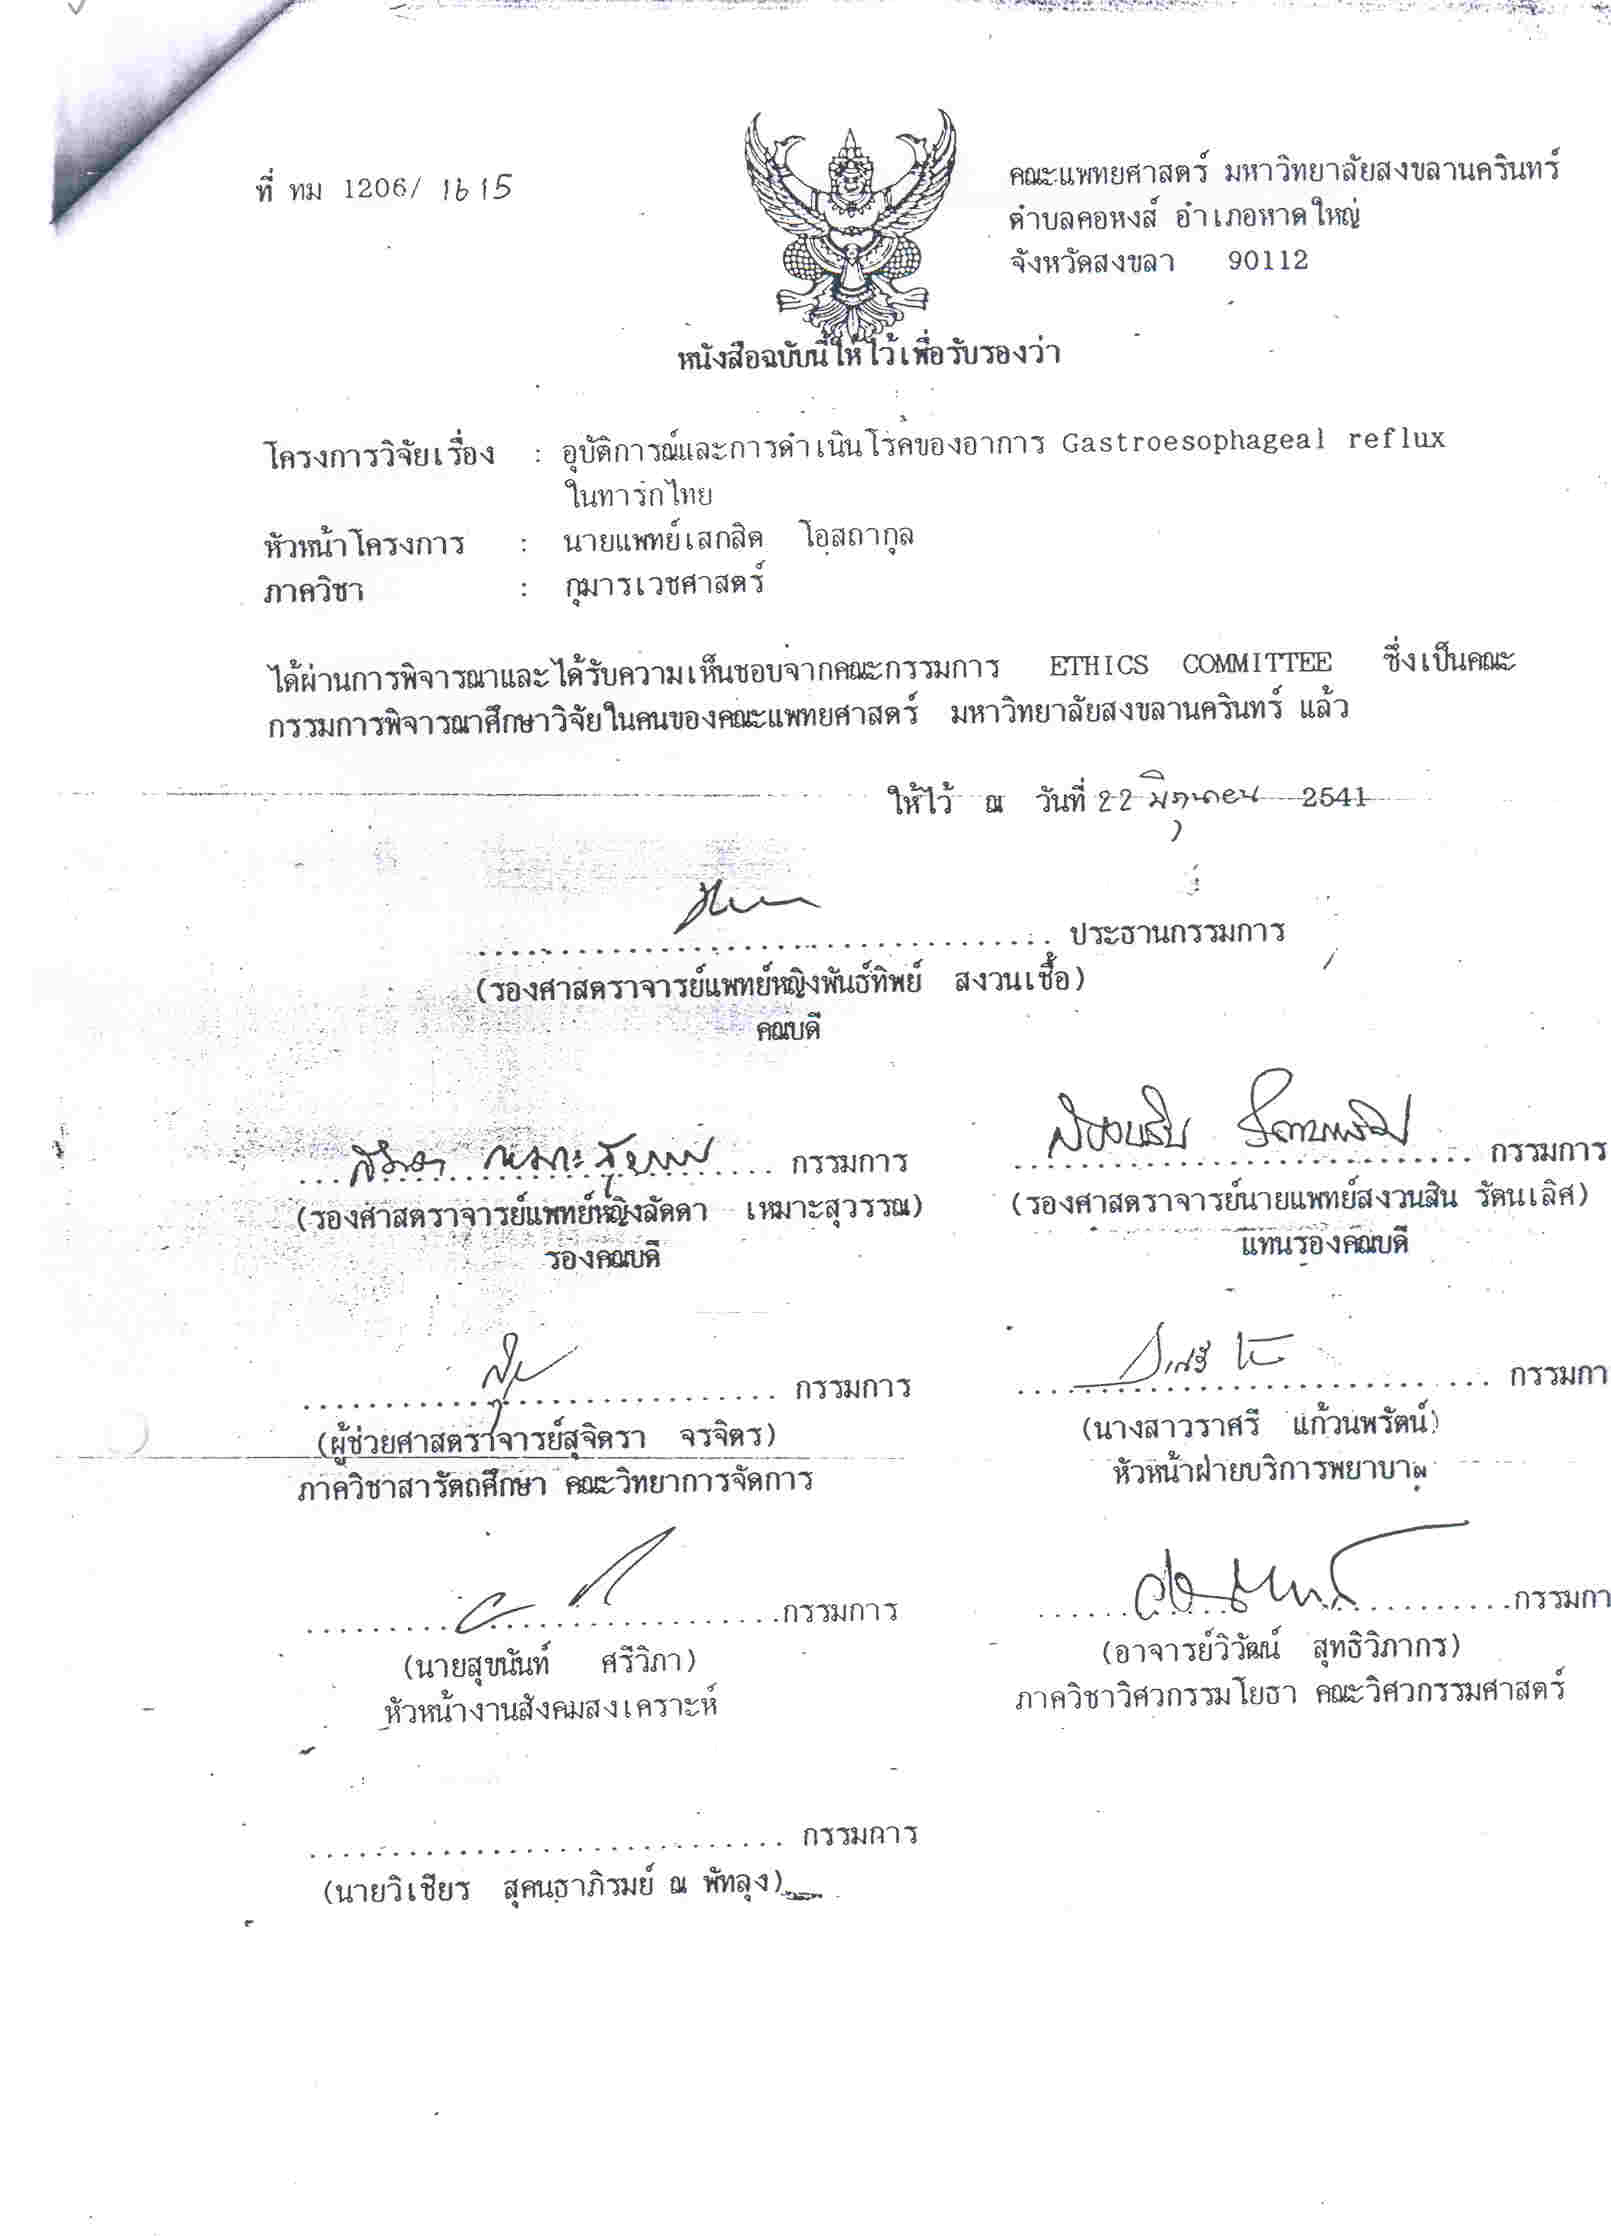 ที่ ทม 1206/ 1615
คณะแพทยศาสตร์ มหาวิทยาลัยสงขลานครินทร์
ตำบลคอหงส์ อำเภอหาดใหญ่
จังหวัดสงขลา 90112
หนังสือฉบับนี้ให้ไว้เพื่อรับรองว่า
โครงการวิจัยเรื่อง : อุบัติการณ์และการดำเนินโรคของอาการ Gastroesophageal reflux
ในทารกไทย
หัวหน้าโครงการ : นายแพทย์เสกสิต โอสถากุล
ภาควิชา : กุมารเวชศาสตร์
ได้ผ่านการพิจารณาและได้รับความเห็นชอบจากคณะกรรมการ ETHICS COMMITTEE ซึ่งเป็นคณะ
กรรมการพิจารณาศึกษาวิจัยในคนของคณะแพทยศาสตร์ มหาวิทยาลัยสงขลานครินทร์ แล้ว
ให้ไว้ ณ วันที่ 22 มิถุนายน 2541
.................................... ประธานกรรมการ
(รองศาสตราจารย์แพทย์หญิงพันธ์ทิพย์ สงวนเชื้อ)
คณบดี
ลัดดา เหมาะสุวรรณ กรรมการ
(รองศาสตราจารย์แพทย์หญิงลัดดา เหมาะสุวรรณ)
รองคณบดี
สงวนสิน รัตนเลิศ กรรมการ
(รองศาสตราจารย์นายแพทย์สงวนสิน รัตนเลิศ)
แทนรองคณบดี
.............................. กรรมการ
(ผู้ช่วยศาสตราจารย์สุจิตรา จรจิตร)
ภาควิชาสารัตถศึกษา คณะวิทยาการจัดการ
.............................. กรรมกา
(นางสาวราศรี แก้วนพรัตน์)
หัวหน้าฝ่ายบริการพยาบาล
..............................กรรมการ
(นายสุขนันท์ ศรีวิภา)
หัวหน้างานสังคมสงเคราะห์
..............................กรรมกา
(อาจารย์วิวัฒน์ สุทธิวิภากร)
ภาควิชาวิศวกรรมโยธา คณะวิศวกรรมศาสตร์
.............................. กรรมการ
(นายวิเชียร สุคนธาภิรมย์ ณ พัทลุง)